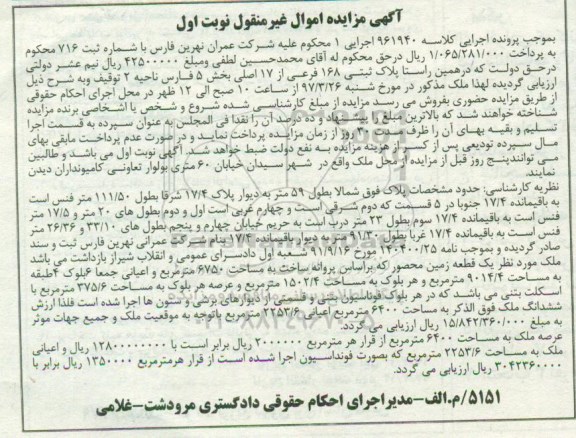 آگهی مزایده اموال غیرمنقول نوبت اول
بموجب پرونده اجرایی کلاسه ۹۶۱۹۴۰ اجرایی ۱ محکوم علیه شرکت عمران نهرین فارس با شماره ثبت ۷۱۶ محکوم
به پرداخت ۱/۰۶۵/۲۸۱/۰۰۰ ریال درحق محکوم له آقای محمدحسین لطفی ومبلغ ۴۲۵۰۰۰۰۰ ریال نیم عشر دولتی
درحق دولت که درهمین راستا پلاک ثبتی ۱۶۸ فرعی از ۱۷ اصلی بخش ۵ فارس ناحیه ۲ توقیف وبه شرح ذیل
ارزیابی گردیده لهذا ملک مذکور در مورخ شنبه ۹۷/۳/۲۶ از ساعت ۱۰ صبح الی ۱۲ ظهر در محل اجرای احکام حقوقی
از طریق مزایده حضوری بفروش می رسد مزایده از مبلغ کارشناسی شده شروع و شخص یا اشخاصی برنده مزایده
شناخته خواهند شد که بالاترین مبلغ را پیشنهاد و ده درصد آن را نقدا فی المجلس به عنوان سپرده به قسمت اجرا
تسلیم و بقیه بهای آن را ظرف روز از زمان مزایده پرداخت نمایند و در صورت عدم پرداخت مابقی بهای
مال سپرده تودیعی پس از کسر از هزینه مزایده به نفع دولت ضبط خواهد شد. آگهی نوبت اول می باشد و طالبین
می توانندپنج روز قبل از مزایده از محل ملک واقع در شهر سیدان خیابان ۶۰ متری بولوار تعاونی کامیونداران دیدن
نمایند.
نظریه کارشناسی: حدود مشخصات پلاک فوق شمالا بطول ۵۹ متر به دیوار پلاک ۱۷/۴ شرقا بطول ۱۱۱/۵۰ متر فنس است
به باقیمانده ۱۷/۴ جنوبا در ۵ قسمت که دوم شرقی است و چهارم غربی است اول و دوم بطول های ۲۰ متر و ۱۷/۵ متر
فنس است به باقیمانده ۱۷/۴ سوم بطول ۲۳ متر درب است به حریم خیابان چهارم و پنجم بطول های ۳۳/۱۰ و ۲۶/۳۶ متر
فنس است به باقیمانده ۱۷/۴ غربا بطول ۹۱/۳۰ متر دیوار باقیمانده ۱۷/۴ بنام شرکت عمرانی نهرین فارس ثبت و سند
صادر گردیده و بموجب نامه ۱۴۰۴۰۰/۲۵ مورخ ۹۱/۹/۱۶ شعبه اول دادسرای عمومی و انقلاب شیراز بازداشت می باشد
ملک مورد نظر یک قطعه زمین محصور که براساس پروانه ساخت به مساحت ۶۷۵۰ مترمربع و اعیانی جمعا ۶بلوک ۴طبقه
به مساحت ۹۰۱۴/۴ مترمربع و هر بلوک به مساحت ۱۵۰۲/۴ مترمربع و عرصه هر بلوک به مساحت ۳۷۵/۶ مترمربع با
اسکلت بتنی می باشد که در هر بلوک فوتاسیون بتنی و قسمتی از دیوارهای برشی و ستون ها اجرا شده است فلذا ارزش
ششدانگ ملک فوق الذکر به مساحت ۶۴۰۰ مترمربع اعیانی ۲۲۵۳/۶ مترمربع باتوجه به موقعیت ملک و جمیع جهات موثر
به مبلغ ۱۵/۸۴۲/۳۶۰/۰۰۰ ریال ارزیابی می گردد.
عرصه ملک به مساحت ۶۴۰۰ مترمربع از قرار هر مترمربع ۲۰۰۰۰۰۰ ریال برابر است با ۱۲۸۰۰۰۰۰۰۰۰ ریال و اعیانی
ملک به مساحت ۲۲۵۳/۶ مترمربع که بصورت فونداسیون اجرا شده است از قرار هرمترمربع ۱۳۵۰۰۰۰ ریال برابر با
۳۰۴۲۳۶۰۰۰۰ ریال ارزیابی می گردد.
۵۱۵۱/م.الف-مدیراجرای احکام حقوقی دادگستری مرودشت-غلامی